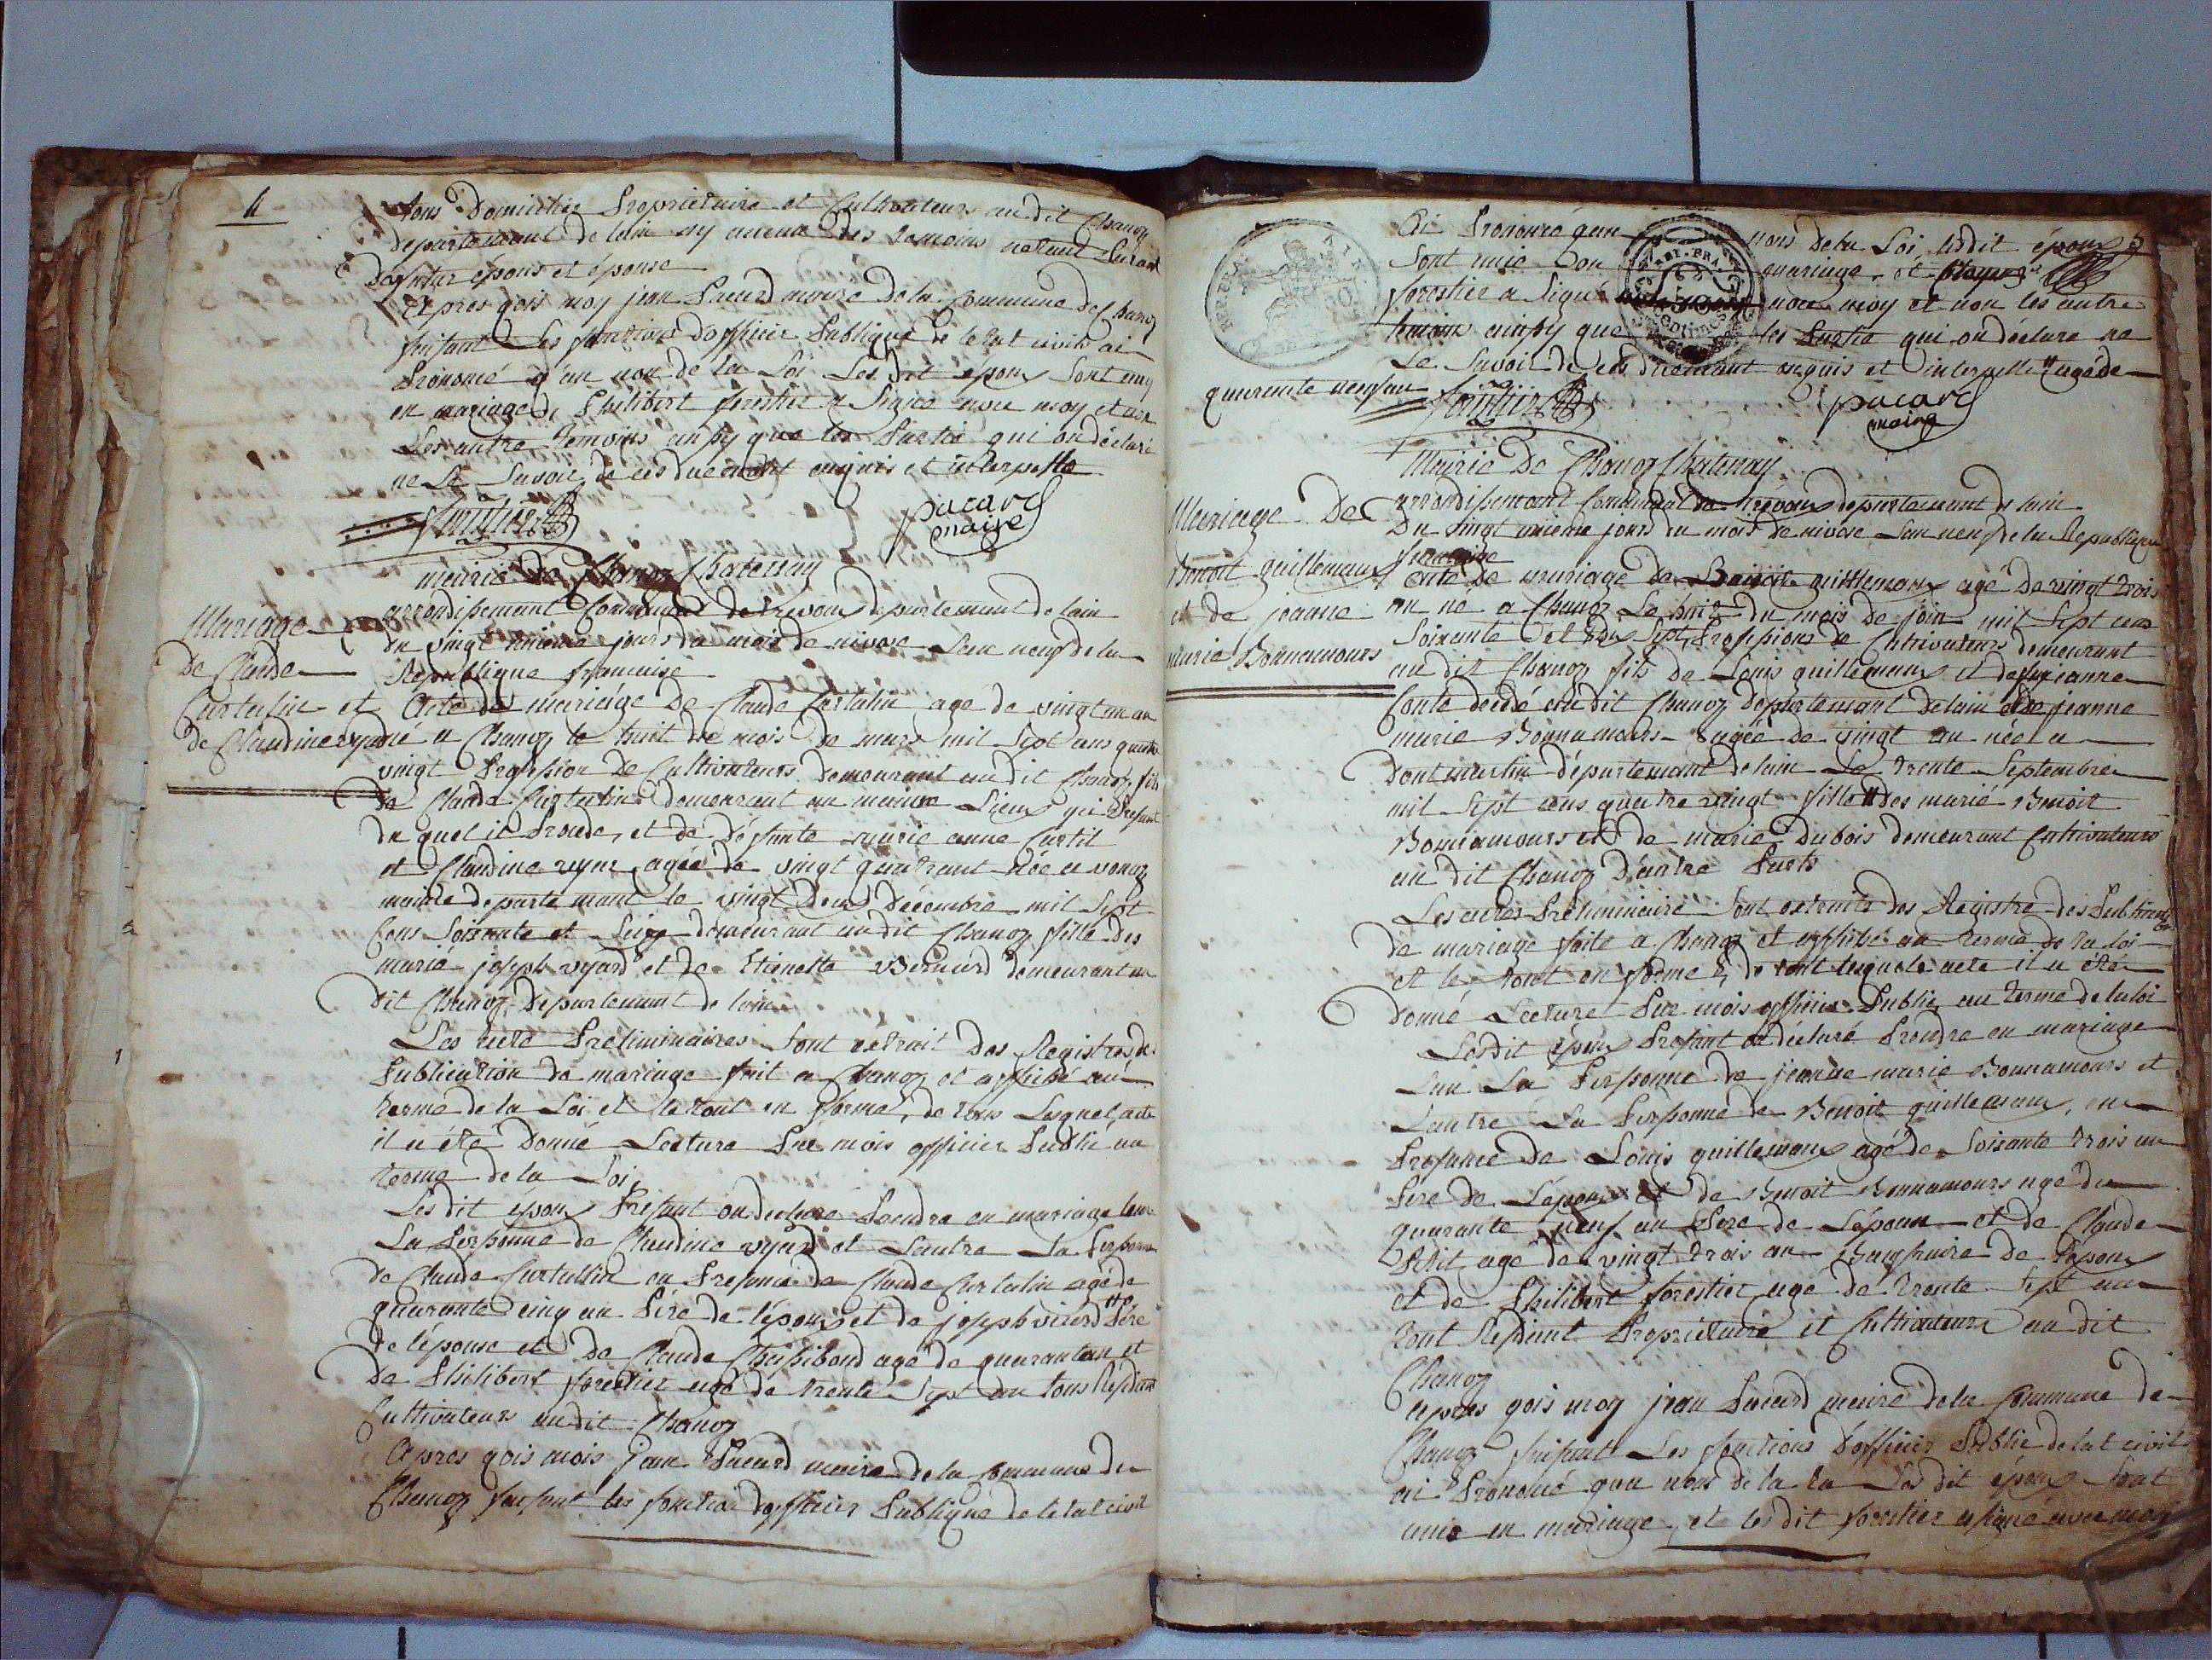 4
tous Domicilie Proprietaire et Cultivateurs au dit Chanoz
departemant de lain ny aucun des temoins netant Parant
des futur epous et épouse
Apres qois moy jean Pacard maire de la Commune de Chanoz
faisant les fonctions dofficier Publique de letat civile ai
Prononcé q'au non de la Loi Les dit epoux sont uny
en mariage, Philibert forestier a Signé avec moy et non
Les autre temoins ainsy que les Partie qui on déclaré
ne Le Savoir de ces duemant enquis et interpelle
forestier
pacard
maire
Mariage
De Claude
Curtulin et
de Claudine vyard
mairie De Chanoz Chatenay
arrondisemant Communal de trevoux departemant de lain
du vingt unieme jours du mois de nivose Lan neuf de la
Republique francaise
Acte de mariage De Claude Curtulin age de vingt un an
né a Chanoz le huit du mois de mars mil Sept cens quatre
vingt Profession De Cultivateurs demeurant au dit Chanoz fils
de Claude Curtulin demeurant au meme Lieux qui Presant
du quel il Procede, et de Défunte marie anne Curtil
et Claudine vyard agée de vingt quatrant née a vonoz
maime departemant le vingt Deux Décembre mil Sept
Cens Soixante et Seize demeurant au dit Chanoz fille des
marié joseph vyard et de Etienette Bernard demeurant au
dit Chanoz departemant de lain
Les acte Preliminaires Sont extrait des Registres de
Publication de mariage fait a Chanoz et affiché au
terme de la Loi et le tout en forme, de tous Lesquel acte
il a éte Donné Lecture Par mois officier Public au
terme de la Loi
Les dit époux Presant on declaré Prendre en mariage lun
La Personne de Claudine vyard et Lautre La Personne
de Claude Curtullin en Presence de Claude Curtulin agé de
quarante cinq an Pére de lépoux et de joseph viard Pére
de lépouse et De Claude Chassibond agé de quarantan et
De Philibert forestier agé de trente Sept an tous Residant
Cultivateurs au dit Chanoz
Apres qois mois jean Pacard maire de la Commune de
Chanoz faisant les fonction dofficier Publique de letat civil
5
Ai Prononcé q'au nons de la Loi lesdit époux
Sont unie en mariage, et
forestier a Signé avec moy et non les autre
temoin ainsy que les Partie qui on declare ne
Le Savoir de ces duemant enquis et interpelle agé de
quarente neuf an
forestier
pacard
maire
Mariage De
Benoit guillemaux
et de jeanne
marie Bonnamours
Mairie De Chanoz Chatenay
arrondisemant Communal de trevoux departemant de lain
Du vingt unieme jours du mois de nivose Lan neuf de la Republique
francaise
acte de mariage de Benoit guillemaux agé de vingt trois
an né a Chanoz Le du mois de join mil Sept cens
Soixante Sept Professions de Cultivateurs demeurant
au dit Chanoz fils de Louis guillemaux et de jeanne
Conte decedé audit Chanoz departemant de lain et de jeanne
marie Bonnamours agée de vingt an née a
Dont martin département de lain Le trente Septembre
mil Sept cens quatre vingt fille des marié Benoit
Bonnamours et de marie Dubois demeurant Cultivateurs
au dit Chanoz D'autre Parts
Les actes Préliminaire Sont extraits des Registre des Publications
de mariage faite a Chanoz et affiché au terme de la Loi
et le tout en forme, de tout lesquels acte il a été
Donné Lecture Par mois officier Public au terme de la loi
Lesdit époux Presant on déclaré Prendre en mariage
Lun La Personne de jeanne marie Bonnamours et
Lautre La Personne de Benoit guillemaux, en
Presence de Louis guillemaux agé de Soixante trois an
Pere de Lépoux et de Benoit Bonnamours agé de
quarante neuf an Pere de Lépouse et de Claude
Petit agé de vingt trois an Beaufraire de lépoux
et de Philibert forestier agé de trente Sept an
tout Residant Proprietaire et Cultivateurs au dit
Chanoz
apres qois moy jean Pacard maire de la Commune de
Chanoz faisant Les fonctions D'officier Public de letat civil
ai Prononcé q'au nons de la Les dit époux Sont
unie en mariage, et les dit forestier a signé avec moy